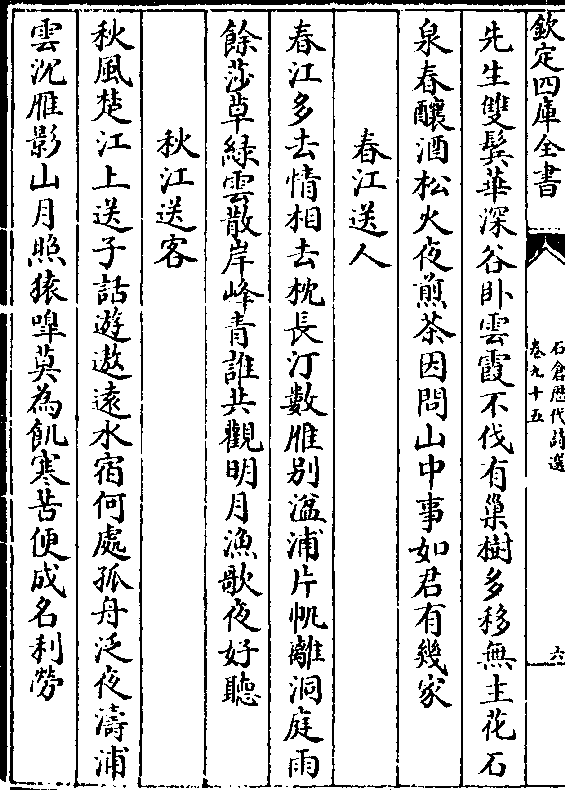 欽定四庫全書
石倉歴代詩選
卷九十五
六
先生雙鬂華深谷卧雲霞不伐有巢樹多移無主花石
泉春釀酒松火夜煎茶因問山中事如君有幾家
春江送人
春江多去情相去枕長汀數雁别湓浦片帆離洞庭雨
餘莎草緑雲散岸峰青誰共觀明月漁歌夜好聽
秋江送客
秋風楚江上送子話遊遨遠水宿何處孤舟泛夜濤浦
雲沉雁影山月照猿嘷莫為飢寒苦便成名利勞